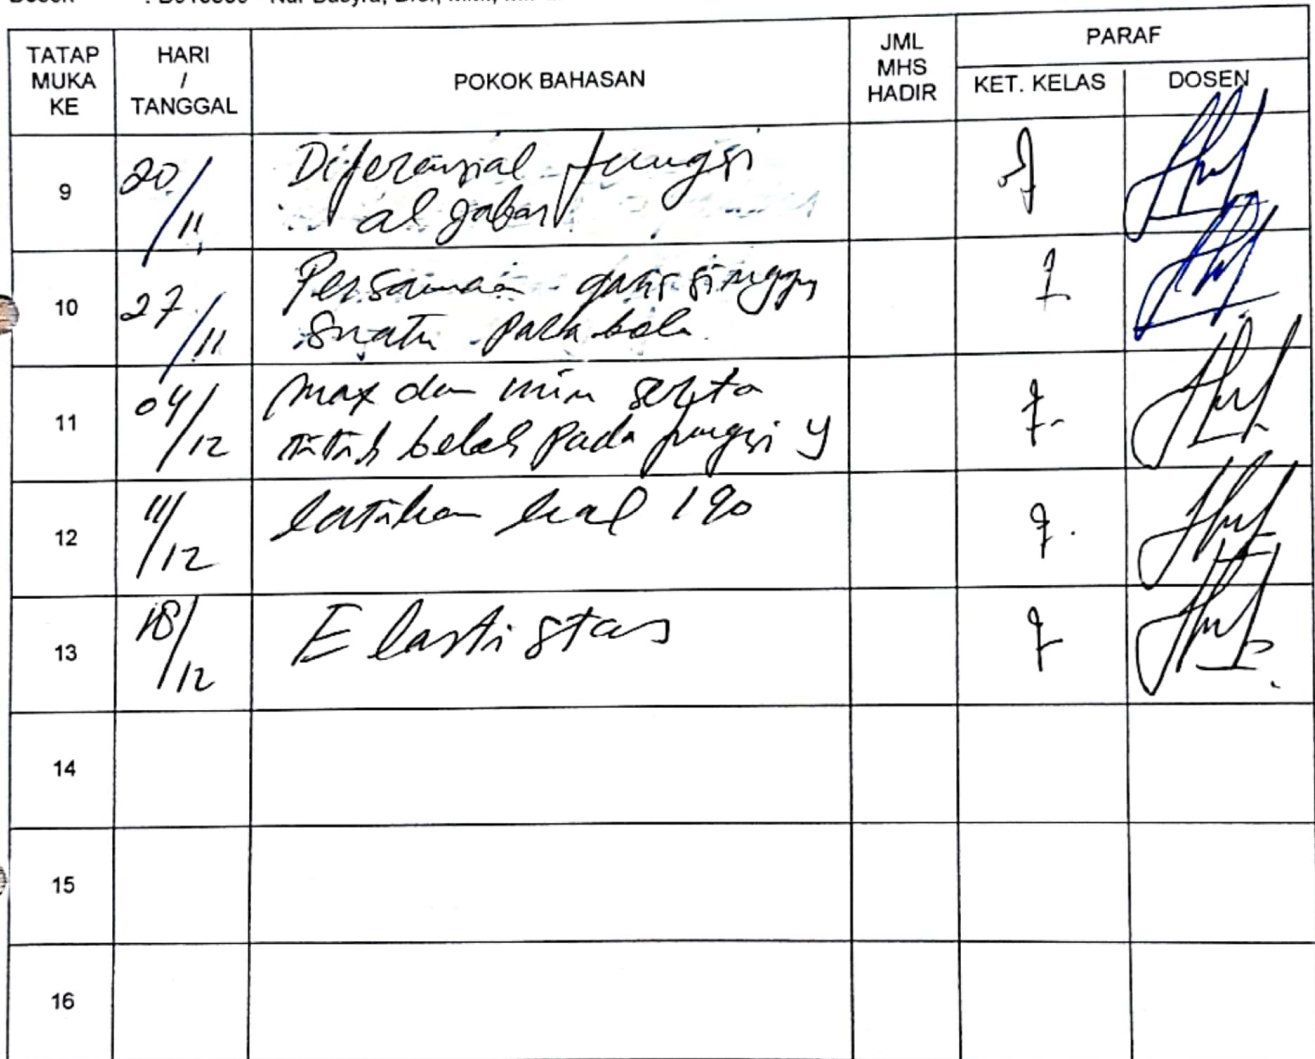 TATAP MUKA KE
HARI / TANGGAL
POKOK BAHASAN
JML MHS HADIR
PARAF
KET. KELAS
DOSEN
9
20/11
Diferensial fungsi
aljabar
10
27/11
Persamaan garis singgung
suatu parabola
11
04/12
max dan min serta
titik belok pada fungsi y
12
11/12
latihan hal 190
13
18/12
Elastisitas
14
15
16